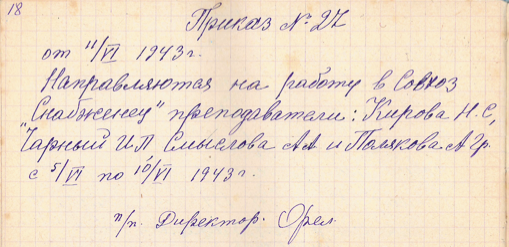 18
Приказ № 27
от 11/VI 1943 г.
Направляются на работу в Совхоз
„Снабженец" преподаватели: Кирова Н.С,
Чарный И П Смыслова А А и Полякова А Гр.
с 5/VI по 10/VI 1943 г.
п/п. Директор. Орел